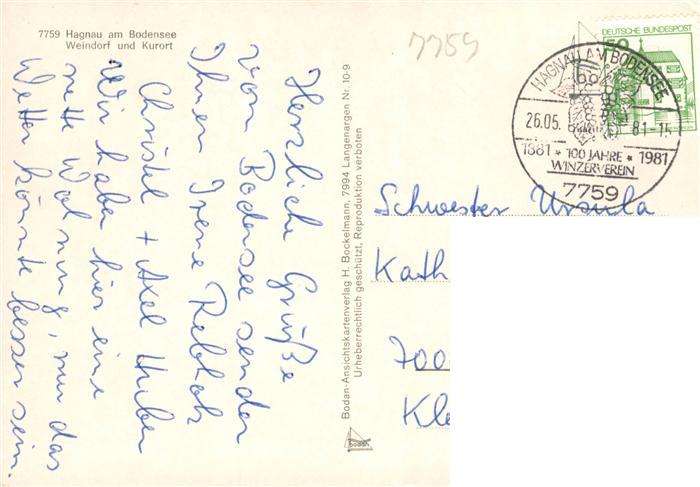 7759 Hagnau am Bodensee
Weindorf und Kurort
Herzliche Grüße
vom Bodensee senden
Ihnen Irene Rebholz
Christel + Axel Huber
Wir haben hier eine
nette Wohnung, nur das
Wetter könnte besser sein.
Bodan-Ansichtskartenverlag H. Bockelmann, 7994 Langenargen Nr. 10-9
Urheberrechtlich geschützt, Reproduktion verboten
bodan
7759
DEUTSCHE BUNDESPOST
50
HAGNAU AM BODENSEE
26.05. 81-15
1881 * 100 JAHRE * 1981
WINZERVEREIN
7759
Schwester Ursula
Kath
700
Kle